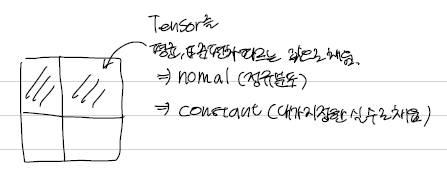 Tensor를
평균, 표준편차 따르는 값으로 채움.
⇒ nomal (정규분포)
⇒ constant (내가 지정한 실수로 채움)